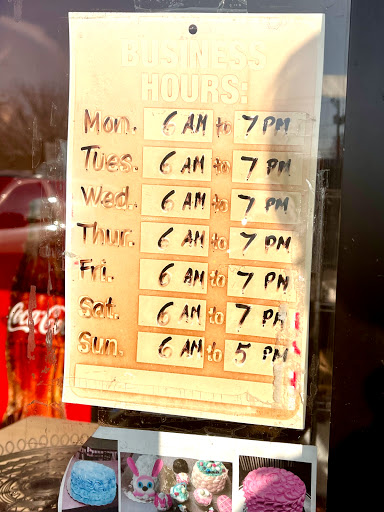 BUSINESS
HOURS:
Mon. 6 AM to 7 PM
Tues. 6 AM to 7 PM
Wed. 6 AM to 7 PM
Thur. 6 AM to 7 PM
Fri. 6 AM to 7 PM
Sat. 6 AM to 7 PM
Sun. 6 AM to 5 PM
Coca-Cola